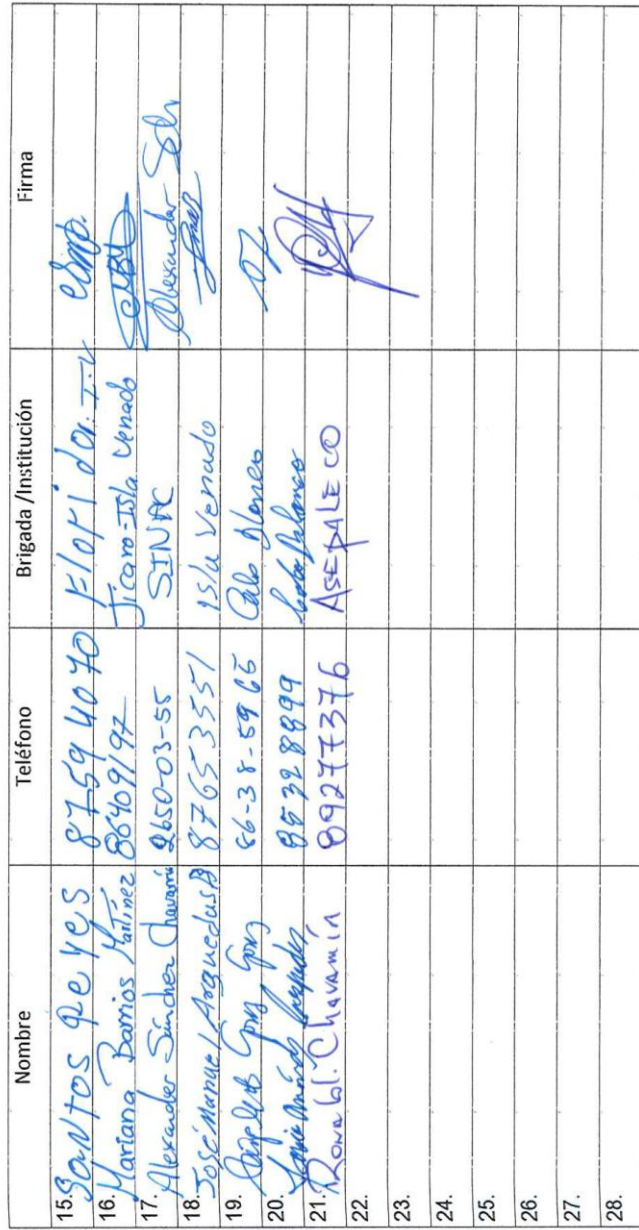 Nombre Teléfono Brigada /Institución Firma
15. Santos Reyes 87594070 Florida. I.V
16. Mariana Barrios Martínez 86409197 Jicaro-Isla Venado
17. Alexander Sánchez Chavarri 2650-03-55 SINAC Alexander
18. José Manuel Arguedas 87653551 Isla Venado
19. 86-38-5965 Cabo Blanco
20. 85328899 Cabo Blanco
21. Ronald. Chavarría 89277376 ASEPALECO
22.
23.
24.
25.
26.
27.
28.